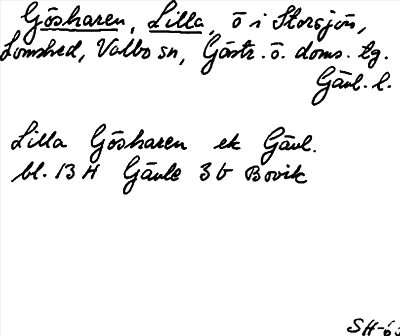 Gösharen, Lilla, ö i Storsjön,
Lomshed, Valbo sn, Gästr. ö. doms. tg.
Gävl. l.
Lilla Gösharen ek Gävl.
bl. 13 H Gävle 3 b Bovik
SH-63